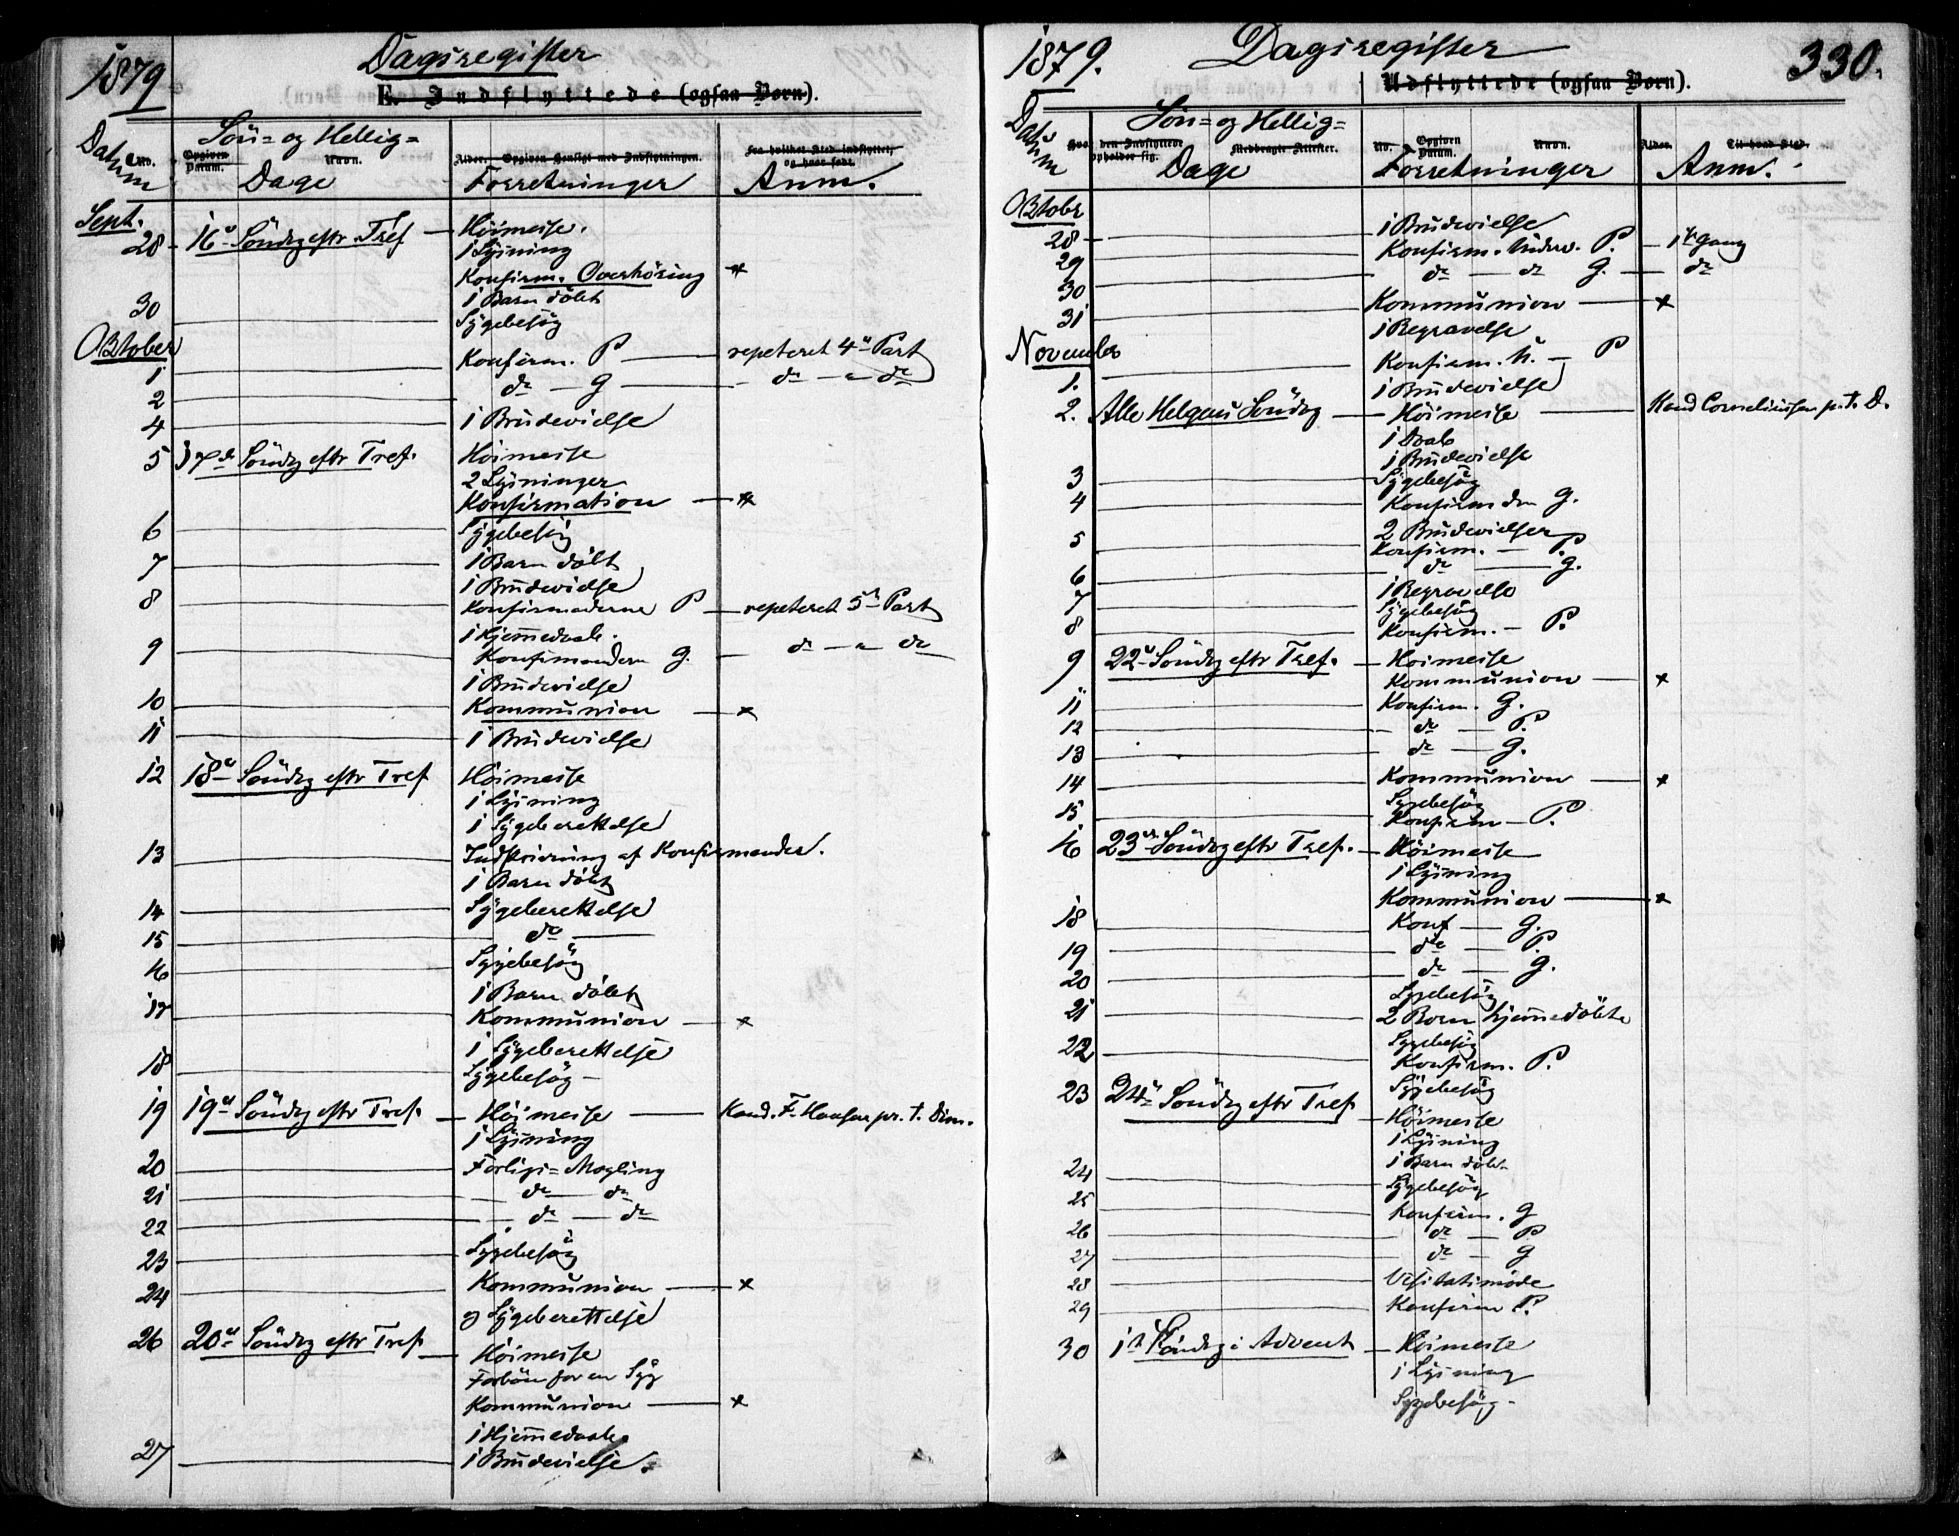 1879
Dagsregister
E. Indflyttede (ogsaa Børn).
Datum Sön- og Hellig-
Dage Forretninger Anm.
Sept.
28 16de Söndag eftr Tref Höimesse.
1 Lysning
Konfirm. Overhöring x
1 Barn döbt
30 Sygebesög
Oktober
1 Konfirm. P repeteret 4de Part
2 do G do do
4 1 Brudevielse
5 17de Söndag eftr Tref. Höimesse
2 Lysninger
Konfirmation x
6 Sygebesög
7 1 Barn döbt
1 Brudevielse
8 Konfirmanderne P repeteret 5te Part
1 Hjemmedaab.
9 Konfirmandern G. do do
1 Brudevielse
10 Kommunion x
11 1 Brudevielse
12 18de Söndag eftr Tref Höimesse
1 Lysning
1 Sygeberettelse
13 Indskrivning af Konfirmander.
1 Barn döbt
14 Sygeberettelse
15 do
16 Sygebesög
1 Barn döbt
17 Kommunion x
1 Sygeberettelse
18 Sygebesög
19 19de Söndag eftr Tref. Höimesse Kand. F. Hansen pr. t. Dim.
1 Lysning
20 Forligs-Mægling
21 do do
22 do do
23 Sygebesög
24 Kommunion x
og Sygeberettelse
26 20de Söndag eftr Tref Höimesse
Forbön for en Syg
Kommunion x
1 Hjemmedaab.
27 1 Brudevielse.
1879.
Dagsregister
330.
Udflyttede (ogsaa Børn).
Datum Sön- og Hellig-
Dage Forretninger Anm.
Oktober
28 1 Brudevielse
29 Konfirm. Underv. P. 1ste Gang
30 do do G. do
31 Kommunion x
1 Begravelse
November
1. Konfirm. U. P
1 Brudevielse
2. Alle Helgens Söndag Höimesse Kand Corneliussen p. t. D.
1 Daab
1 Brudevielse
3 Sygebesög
4 Konfirmden G.
2 Brudevielser
5 Konfirm. P.
6 do G.
7 1 Begravelse
Sygebesög
8 Konfirm. P.
9 22de Söndag eftr Tref. Höimesse
Kommunion x
11 Konfirm. G.
12 do P.
13 do G.
14 Kommunion x
Sygebesög
15 Konfirm P.
16 23de Söndag eftr Tref. Höimesse
1 Lysning
Kommunion x
18 Konf G.
19 do P.
20 do G.
Sygebesög
21 2 Börn hjemmedöbte
Sygebesög
22 Konfirm. P.
Sygebesög
23 24de Söndag eftr Tref Höimesse
1 Lysning
1 Barn döbt
24 Sygebesög
25 Konfirm. G
26 do P
27 do G
28 Visitatsmöde
29 Konfirm P.
30 1ste Söndag i Advent Höimesse
1 Lysning
Sygebesög